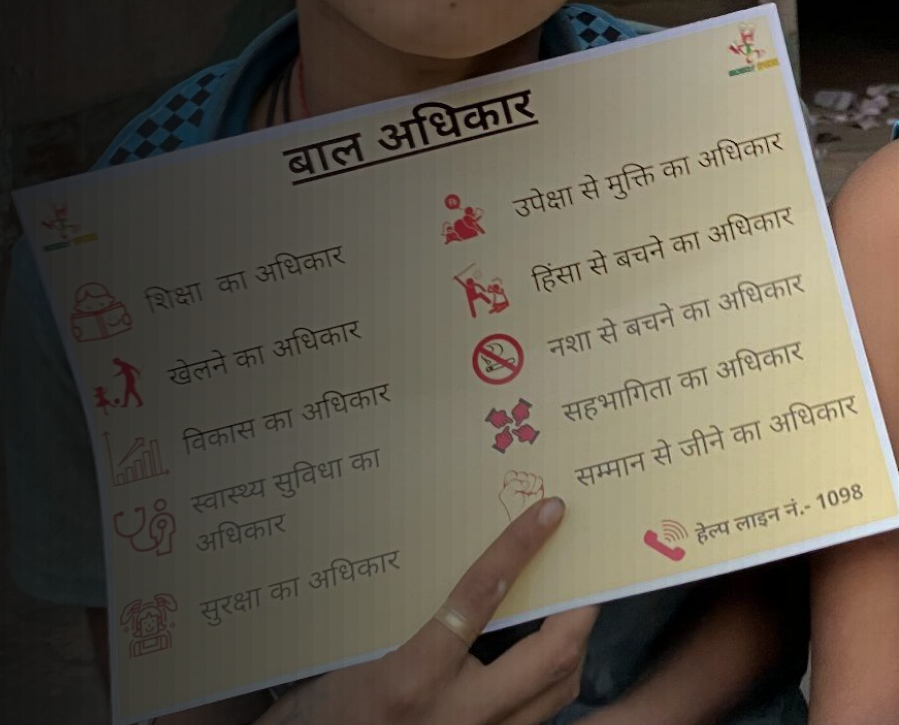 बाल अधिकार
शिक्षा का अधिकार
खेलने का अधिकार
विकास का अधिकार
स्वास्थ्य सुविधा का
अधिकार
सुरक्षा का अधिकार
उपेक्षा से मुक्ति का अधिकार
हिंसा से बचने का अधिकार
नशा से बचने का अधिकार
सहभागिता का अधिकार
सम्मान से जीने का अधिकार
हेल्प लाइन नं.- 1098